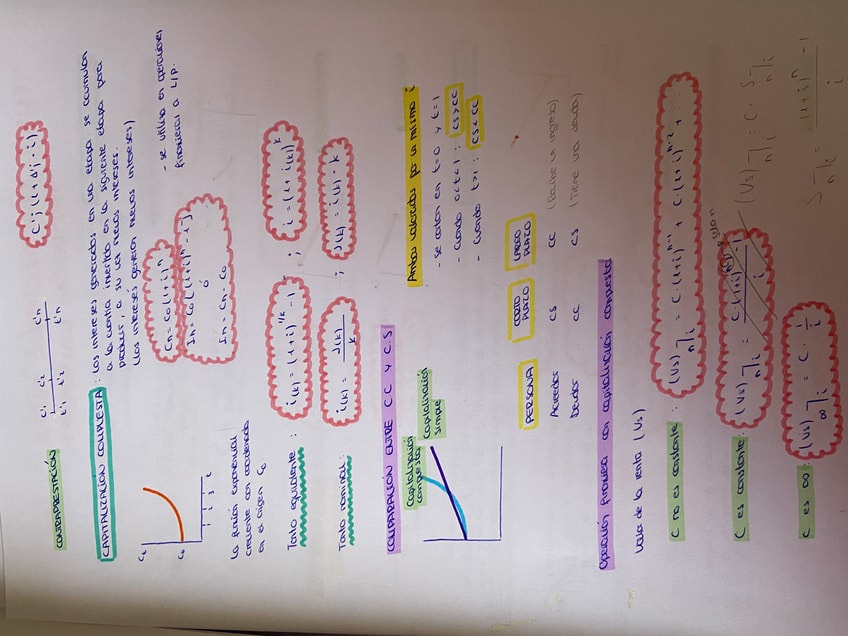 CONTRAPRESTACIÓN
C'1 C'2 C'n
t'1 t'2 t'n
C'j (1 + Δ'j · i)
CAPITALIZACION COMPUESTA: los intereses generados en una etapa se acumulan
a la cuantia invertida en la siguiente etapa para
producir, a su vez nuevos intereses.
(los intereses generan nuevos intereses)
Ct
C0
1 2 3 t
Cn = C0 (1+i)^n
In = C0 [(1+i)^n - 1]
ó
In = Cn - C0
- se utiliza en operaciones
financieras a L/P.
la función exponencial
creciente con ordenada
en el origen C0
Tanto equivalente: i(k) = (1+i)^1/k - 1 ; i = (1 + i(k))^k
Tanto nominal: i(k) = J(k) / k ; J(k) = i(k) · k
COMPARACION ENTRE CC Y CS
Capitalización
compuesta
Capitalización
simple
Ambas valoradas por un mismo i
- se cortan en t=0 y t=1
- cuando 0<t<1: CS>CC
- cuando t>1: CS<CC
PERSONA CORTO PLAZO LARGO PLAZO
Acreedor CS CC (Recibe un ingreso)
Deudor CC CS (Tiene una deuda)
Operación financiera con capitalización compuesta
Valor de la renta (Vs)
C no es constante: (Vs) n¬i = C · (1+i)^n-1 + C · (1+i)^n-2 + ...
C es constante: (Vs) n¬i = C · (1+i)^n - 1 / i (Vs) n¬i = C · S n¬i
C es ∞: (Vs) ∞¬i = C · 1/i
S n¬i = (1+i)^n - 1 / i